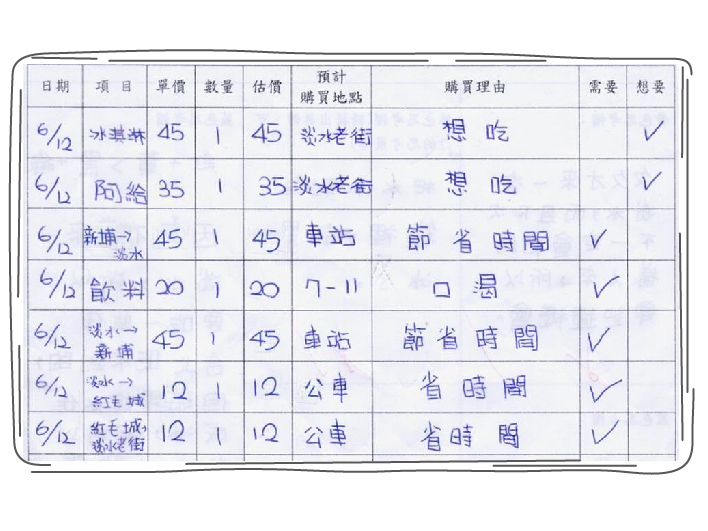 日期 項目 單價 數量 估價 預計購買地點 購買理由 需要 想要
6/12 冰淇淋 45 1 45 淡水老街 想吃 ✓
6/12 阿給 35 1 35 淡水老街 想吃 ✓
6/12 新埔→淡水 45 1 45 車站 節省時間 ✓
6/12 飲料 20 1 20 7-11 口渴 ✓
6/12 淡水→新埔 45 1 45 車站 節省時間 ✓
6/12 淡水→紅毛城 12 1 12 公車 省時間 ✓
6/12 紅毛城→淡水老街 12 1 12 公車 省時間 ✓